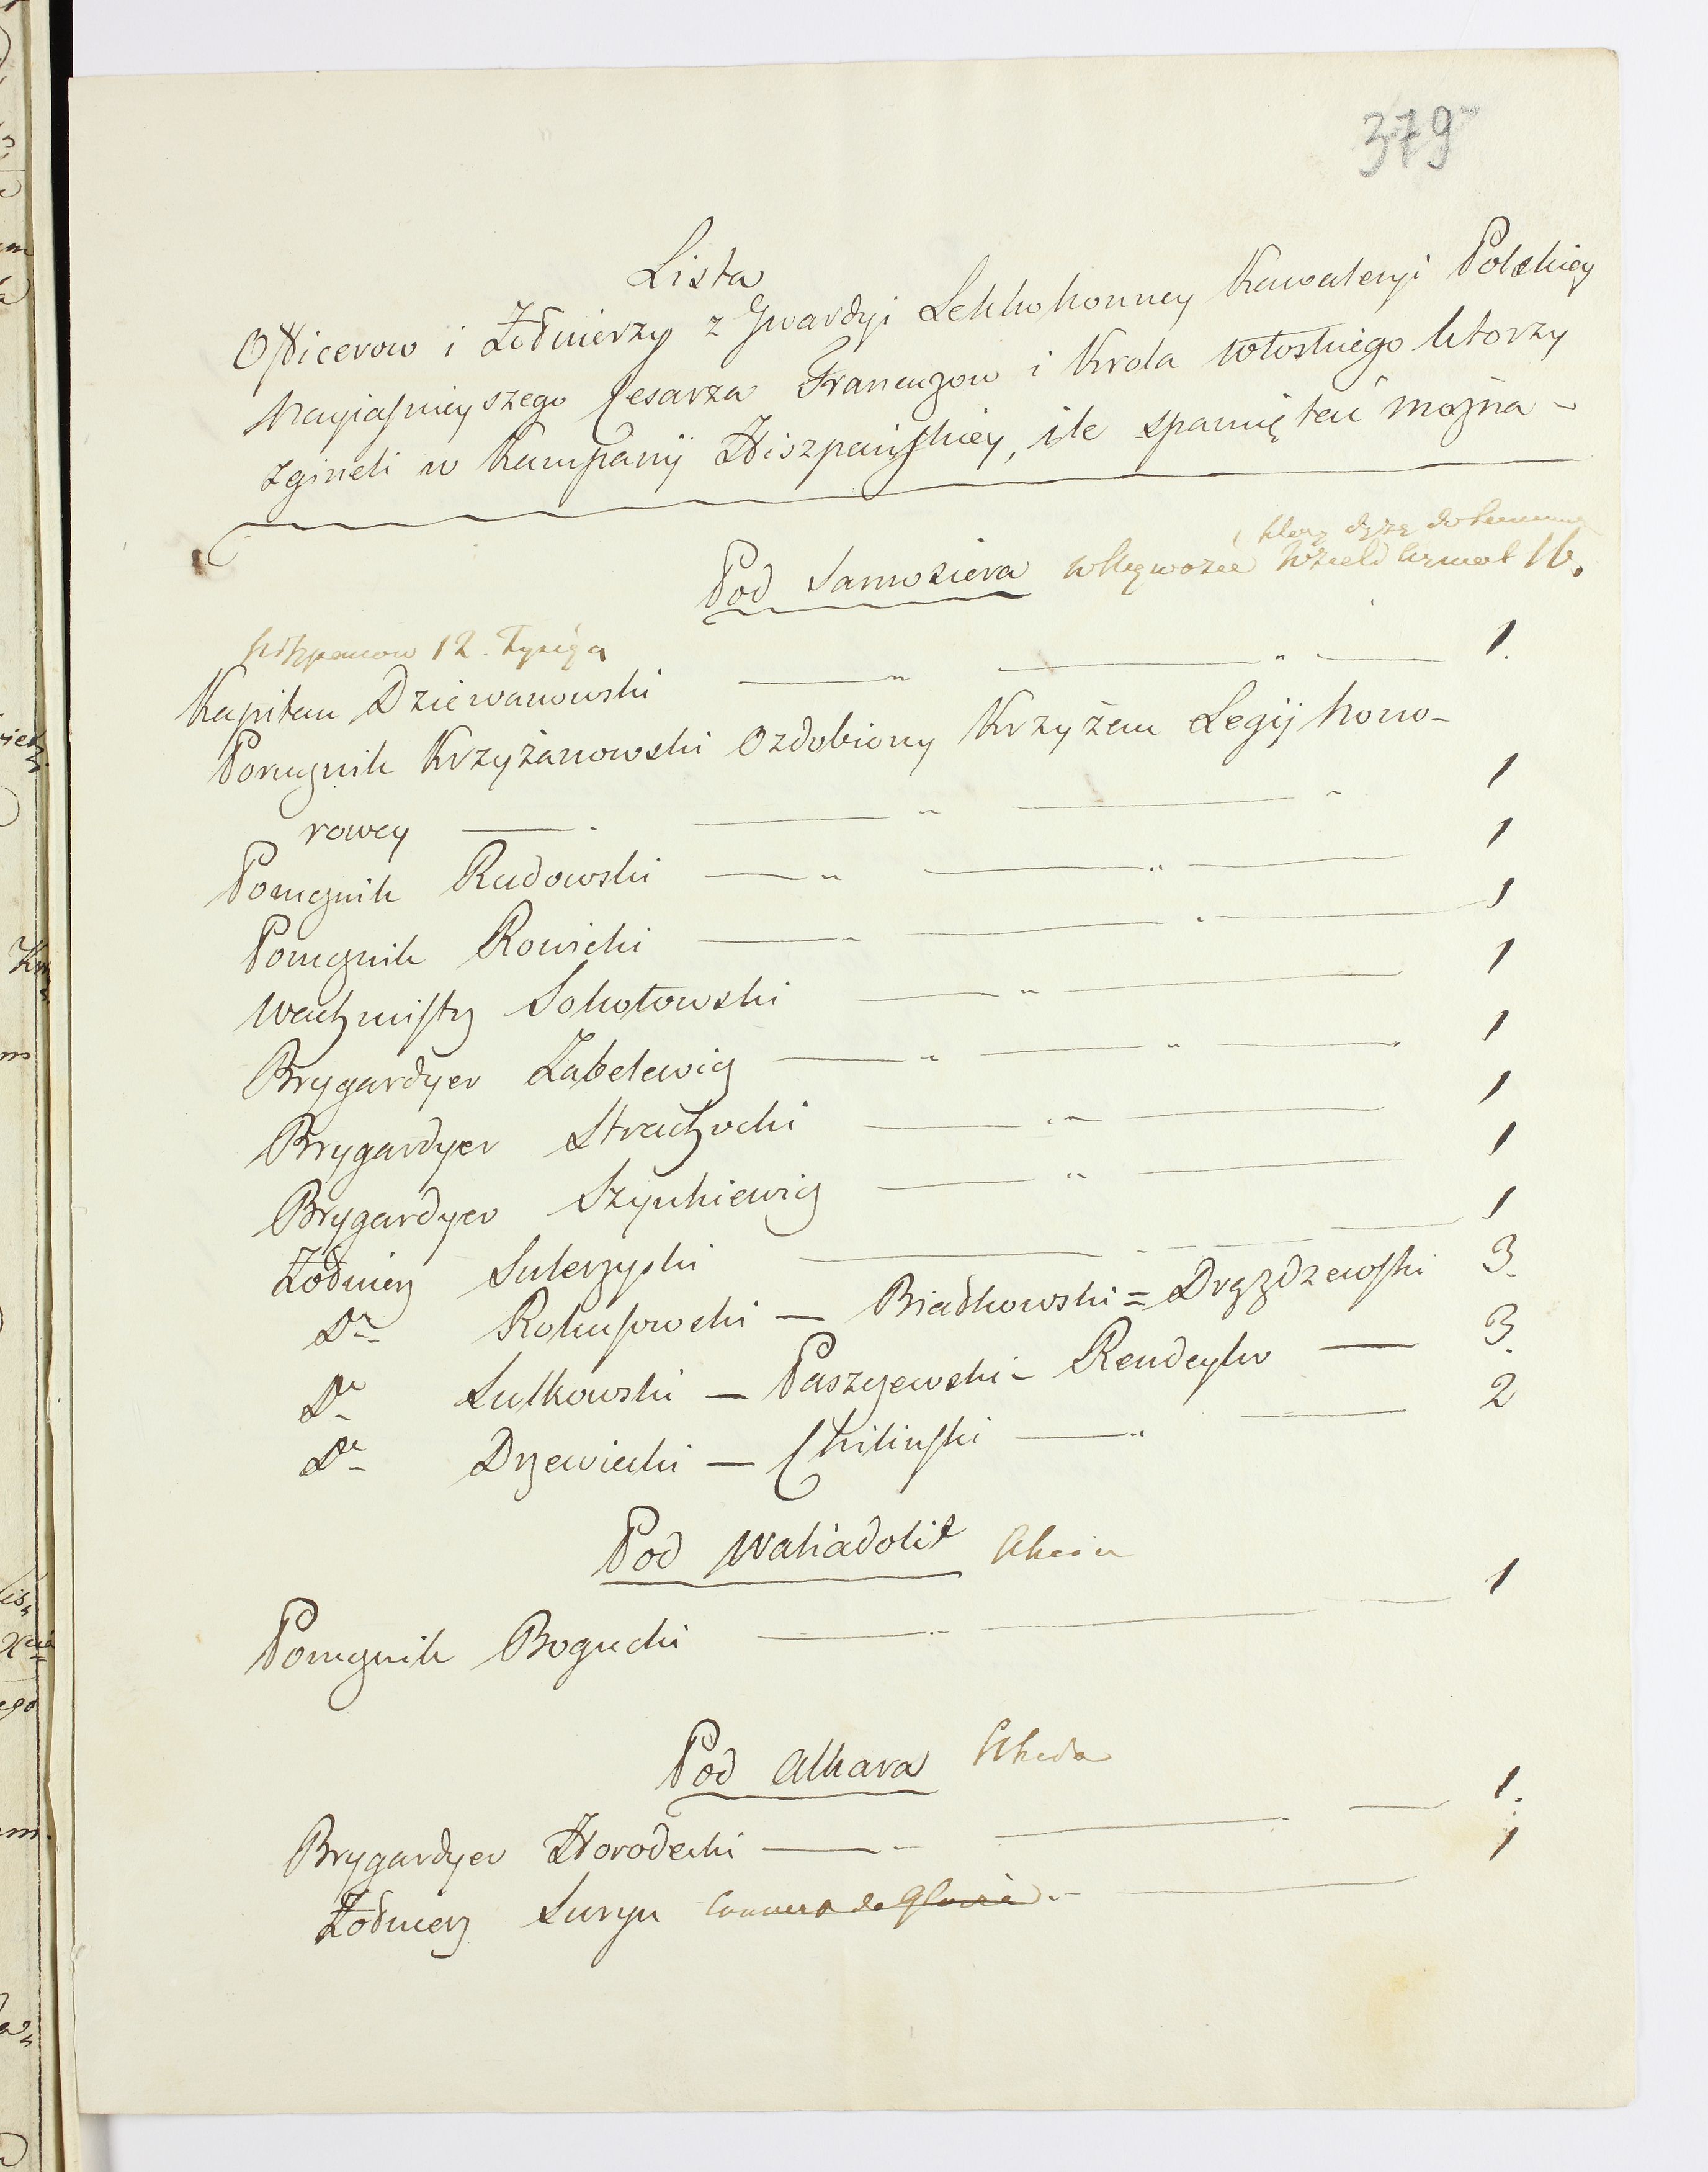 379
Lista
Officerow i Żołnierzy z Gwardyi Lekkokonney Kawaleryi Polskiey
Nayiaśnieyszego Cesarza Francuzow i Krola Włoskiego ktorzy
zgineli w Kampanij Hiszpańskiey, ile spamiętać można -
Pod Samosiera w Wąwozie wzieli armat 16.
hiszpanow 12. Tysięcy
Kapitan Dziewanowski 1.
Porucznik Krzyżanowski Ozdobiony Krzyżem Legij hono-
rowey 1
Porucznik Rudowski 1
Porucznik Rowicki 1
Wachmistrz Sokołowski 1
Brygardyer Zabelewicz 1
Brygardyer Strachocki 1
Brygardyer Szynkiewicz 1
Żołnierz Suterzyski 1
Do Rokusowski — Białkowski = Drzązdzewski 3.
Do Lutkowski — Paszczewski - Rendeyko 3.
Do Drzewiecki — Chiliński 2
Pod Waliadolid
Porucznik Bogucki 1
Pod Alkara
Brygardyer Horodecki 1.
Żołnierz Suryn 1